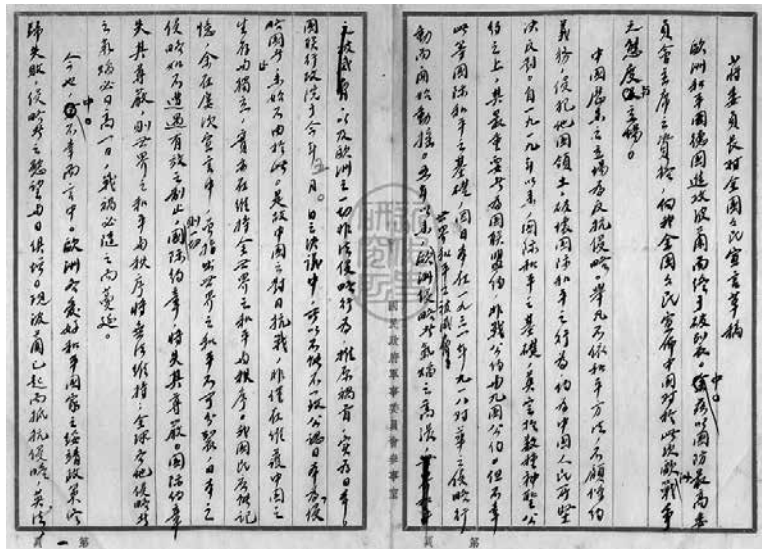 蔣委員長對全國公民宣言草稿
歐洲和平因德國進攻波蘭而終于破裂。中。余茲以國防最高委
員會主席之資格，向我全國公民宣佈中國對於此次歐戰爭
之態度與立場。
中國歷來之立場為反抗侵略。舉凡不依和平方法，不顧條約
義務，侵犯他國領土，破壞國際和平之行為，均為中國人民所堅
決反對。自一九一九年以來，國際和平之基礎，奠定於數種神聖公
約之上，其最重要者為國聯盟約，非戰公約與九國公約。但不幸
此等國際和平之基礎，因日本在一九三一年九一八對華之侵略行
動而開始動搖。年以來，歐洲侵略者氣燄之高漲，
世界和平之被威脅
以及歐洲之一切非法侵略行為，推原禍首，實為日本。
國聯行政院于今年五月 日之決議中，所以不能不一致公認日本為侵
略國，未始不由於此。是故中國之對日抗戰，非僅在維護中國之
生存與獨立，實亦在維持全世界之和平與秩序。我國民當能記
憶，余在屢次宣言中，曾指出世界之和平不可分裂，日本之
侵略如不遭遇有效之制止，則國際約章，將失其尊嚴。國際約章
失其尊嚴，則世界之和平與秩序將無法維持，全球各地侵略者
之氣燄必日高一日，戰禍必隨之而蔓延。
今也，中。不幸而言中。歐洲各愛好和平國家之綏靖政策終
歸失敗，侵略者之慾望與日俱增。現波蘭已起而抵抗侵略，英法
國民政府軍事委員會參事室
第 頁
第一頁